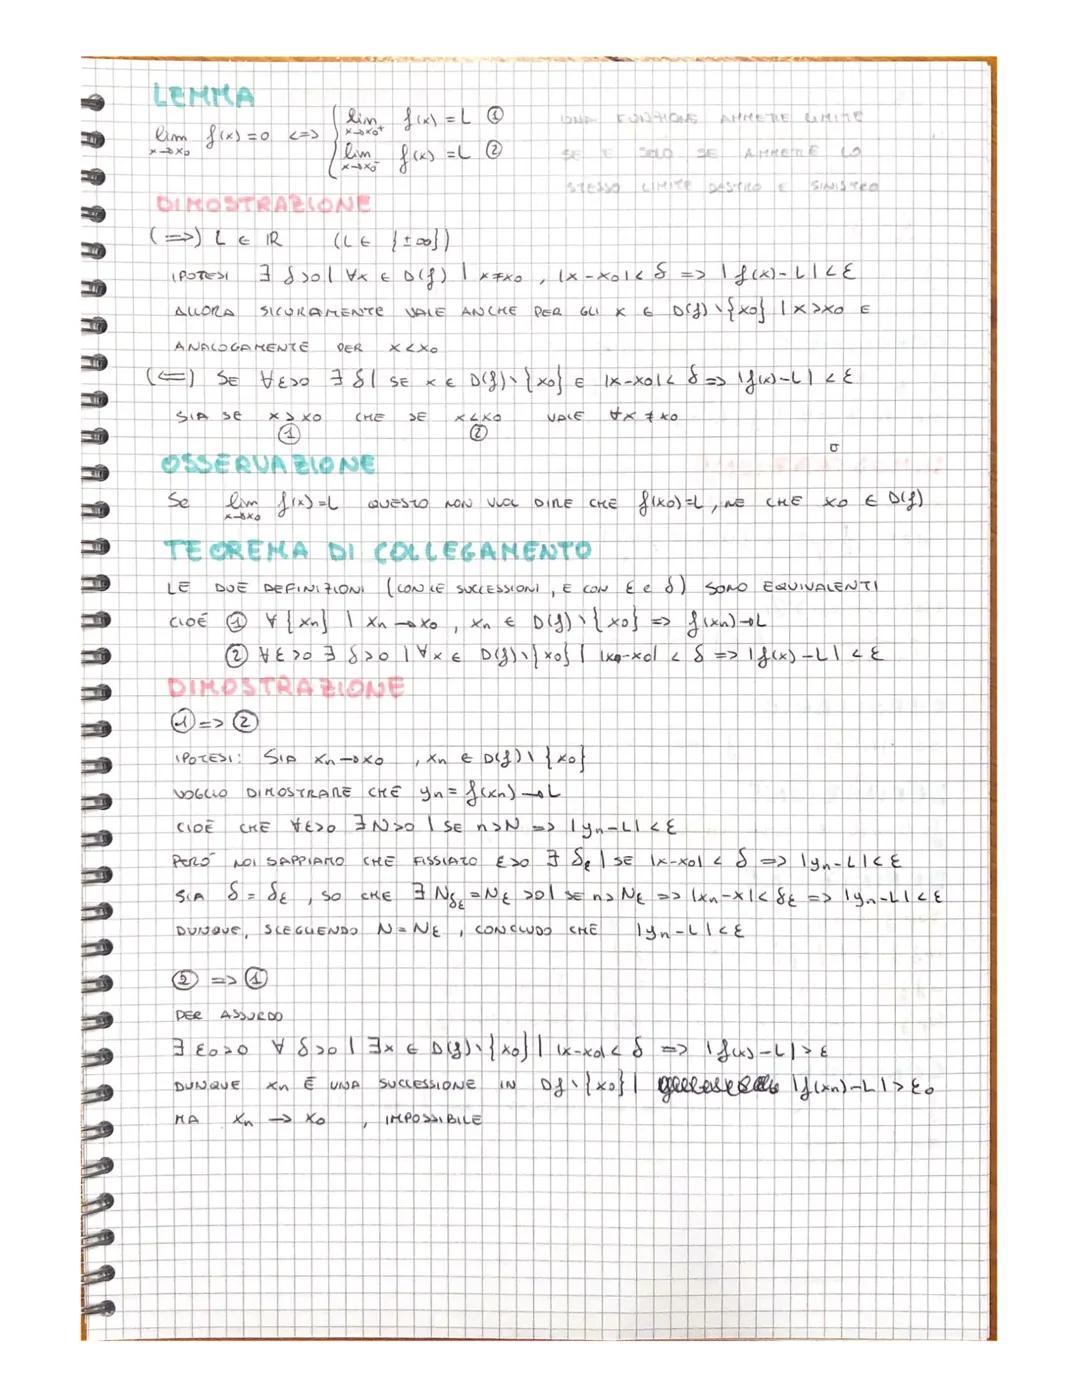 LEMMA
lim x→x0 f(x)=0 <=> { lim x→x0+ f(x)=L ①
lim x→x0- f(x)=L ②
UNA FUNZIONE AMMETTE LIMITE
SE E SOLO SE AMMETTE LO
STESSO LIMITE DESTRO E SINISTRO
DIMOSTRAZIONE
(=>) L ∈ IR (L ∈ {±∞})
IPOTESI ∃ δ>0 | ∀x ∈ D(f) | x≠x0, |x-x0|<δ => |f(x)-L|<ε
ALLORA SICURAMENTE VALE ANCHE PER GLI x ∈ D(f)\{x0} | x>x0 E
ANALOGAMENTE PER x<x0
(<=) SE ∀ε>0 ∃ δ | SE x ∈ D(f)\{x0} E |x-x0|<δ => |f(x)-L|<ε
SIA SE x>x0 CHE SE x<x0 VALE ∀x≠x0
① ②
σ
OSSERVAZIONE
Se lim x→x0 f(x)=L QUESTO NON VUOL DIRE CHE f(x0)=L, NE CHE x0 ∈ D(f)
TEOREMA DI COLLEGAMENTO
LE DUE DEFINIZIONI (CON LE SUCCESSIONI, E CON ε e δ) SONO EQUIVALENTI
CIOÈ ① ∀{xn} | xn→x0, xn ∈ D(f)\{x0} => f(xn)→L
② ∀ε>0 ∃ δ>0 | ∀x ∈ D(f)\{x0} | |x-x0|<δ => |f(x)-L|<ε
DIMOSTRAZIONE
①=>②
IPOTESI: SIA xn→x0, xn ∈ D(f)\{x0}
VOGLIO DIMOSTRARE CHE yn=f(xn)→L
CIOÈ CHE ∀ε>0 ∃N>0 | SE n>N => |yn-L|<ε
PERÒ NOI SAPPIAMO CHE FISSIATO ε>0 ∃ δε | SE |x-x0|<δ => |yn-L|<ε
SIA δ=δε, SO CHE ∃ Nδε=Nε>0 | SE n>Nε => |xn-x|<δε => |yn-L|<ε
DUNQUE, SCEGLIENDO N=Nε, CONCLUDO CHE |yn-L|<ε
②=>①
PER ASSURDO
∃ ε0>0 ∀ δ>0 | ∃x ∈ D(f)\{x0} | |x-x0|<δ => |f(x)-L|>ε
DUNQUE xn È UNA SUCCESSIONE IN Df\{x0} | |f(xn)-L|>ε0
MA xn→x0, IMPOSSIBILE